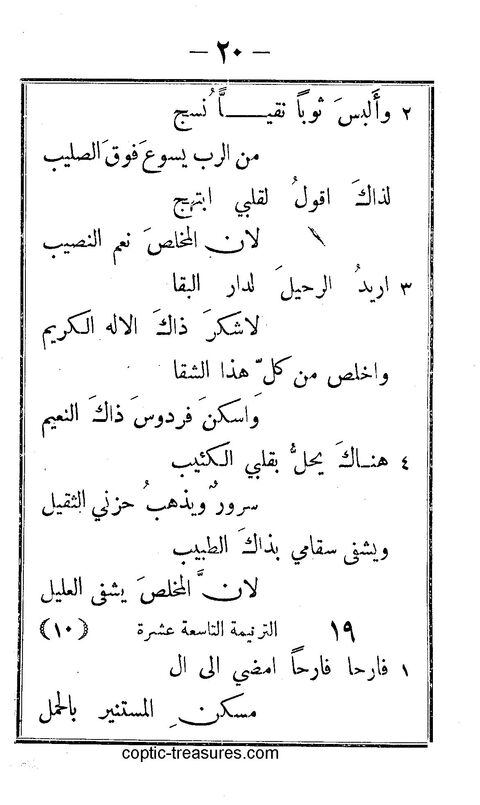 — ٢٠ —
٢ وأَلبسَ ثوباً نقيـــاًّ نُسج
من الرب يسوعَ فوقَ الصليب
لذاكَ اقولُ لقلبي ابتهج
لان المخلصَ نعم النصيب
٣ اريدُ الرحيلَ لدار البقا
لاشكرَ ذاكَ الاله الكريم
واخلص من كلّ هذا الشقا
وَاسكنَ فردوسَ ذاكَ النعيم
٤ هنـاكَ يحلُّ بقلبي الكئيب
سرورٌ ويذهبُ حزني الثقيل
ويشفى سقامي بذاكَ الطبيب
لانَّ المخلصَ يشفى العليل
١٩ الترنيمة التاسعة عشرة (١٠)
١ فارحا فارحاً امضي الى ال
مسكنِ المستنير بالحمل
coptic-treasures.com